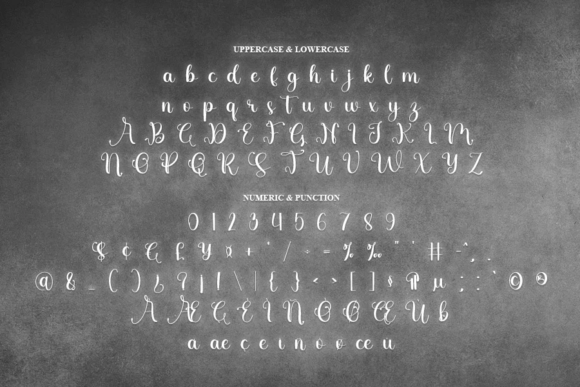 UPPERCASE & LOWERCASE
a b c d e f g h i j k l m
n o p q r s t u v w x y z
A B C D E F G H I J K L M
N O P Q R S T U V W X Y Z
NUMERIC & PUNCTION
0 1 2 3 4 5 6 7 8 9
$ ¢ € £ ¥ ¤ + * / ÷ = % ‰ " ' # ~ ^
@ & _ ( ) ¿ ? ¡ ! \ | { } < > [ ] § ¶ µ ; : ` © ®
A Æ Ç E I N O Ø Œ U
a æ ç e i n o ø œ u